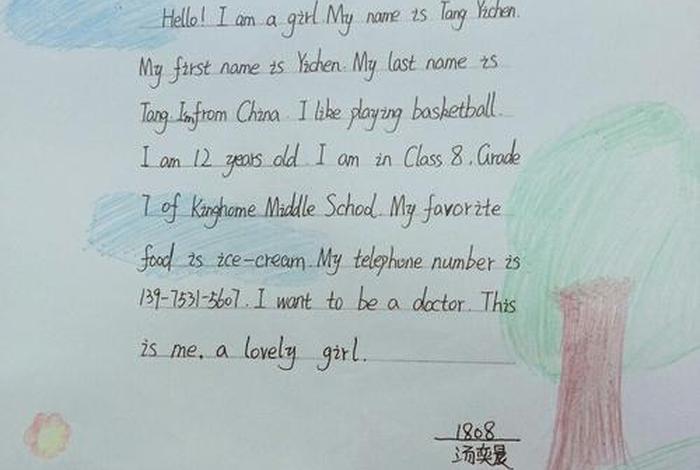 Hello! I am a girl My name is Tang Yichen.
My first name is Yichen. My last name is
Tang. Imfrom China. I like playing basketball.
I am 12 years old. I am in Class 8. Grade
7 of Kinghome Middle School. My favorite
food is ice-cream. My telephone number is
139-7531-5607. I want to be a doctor. This
is me. a lovely girl.
1808
汤奕晨